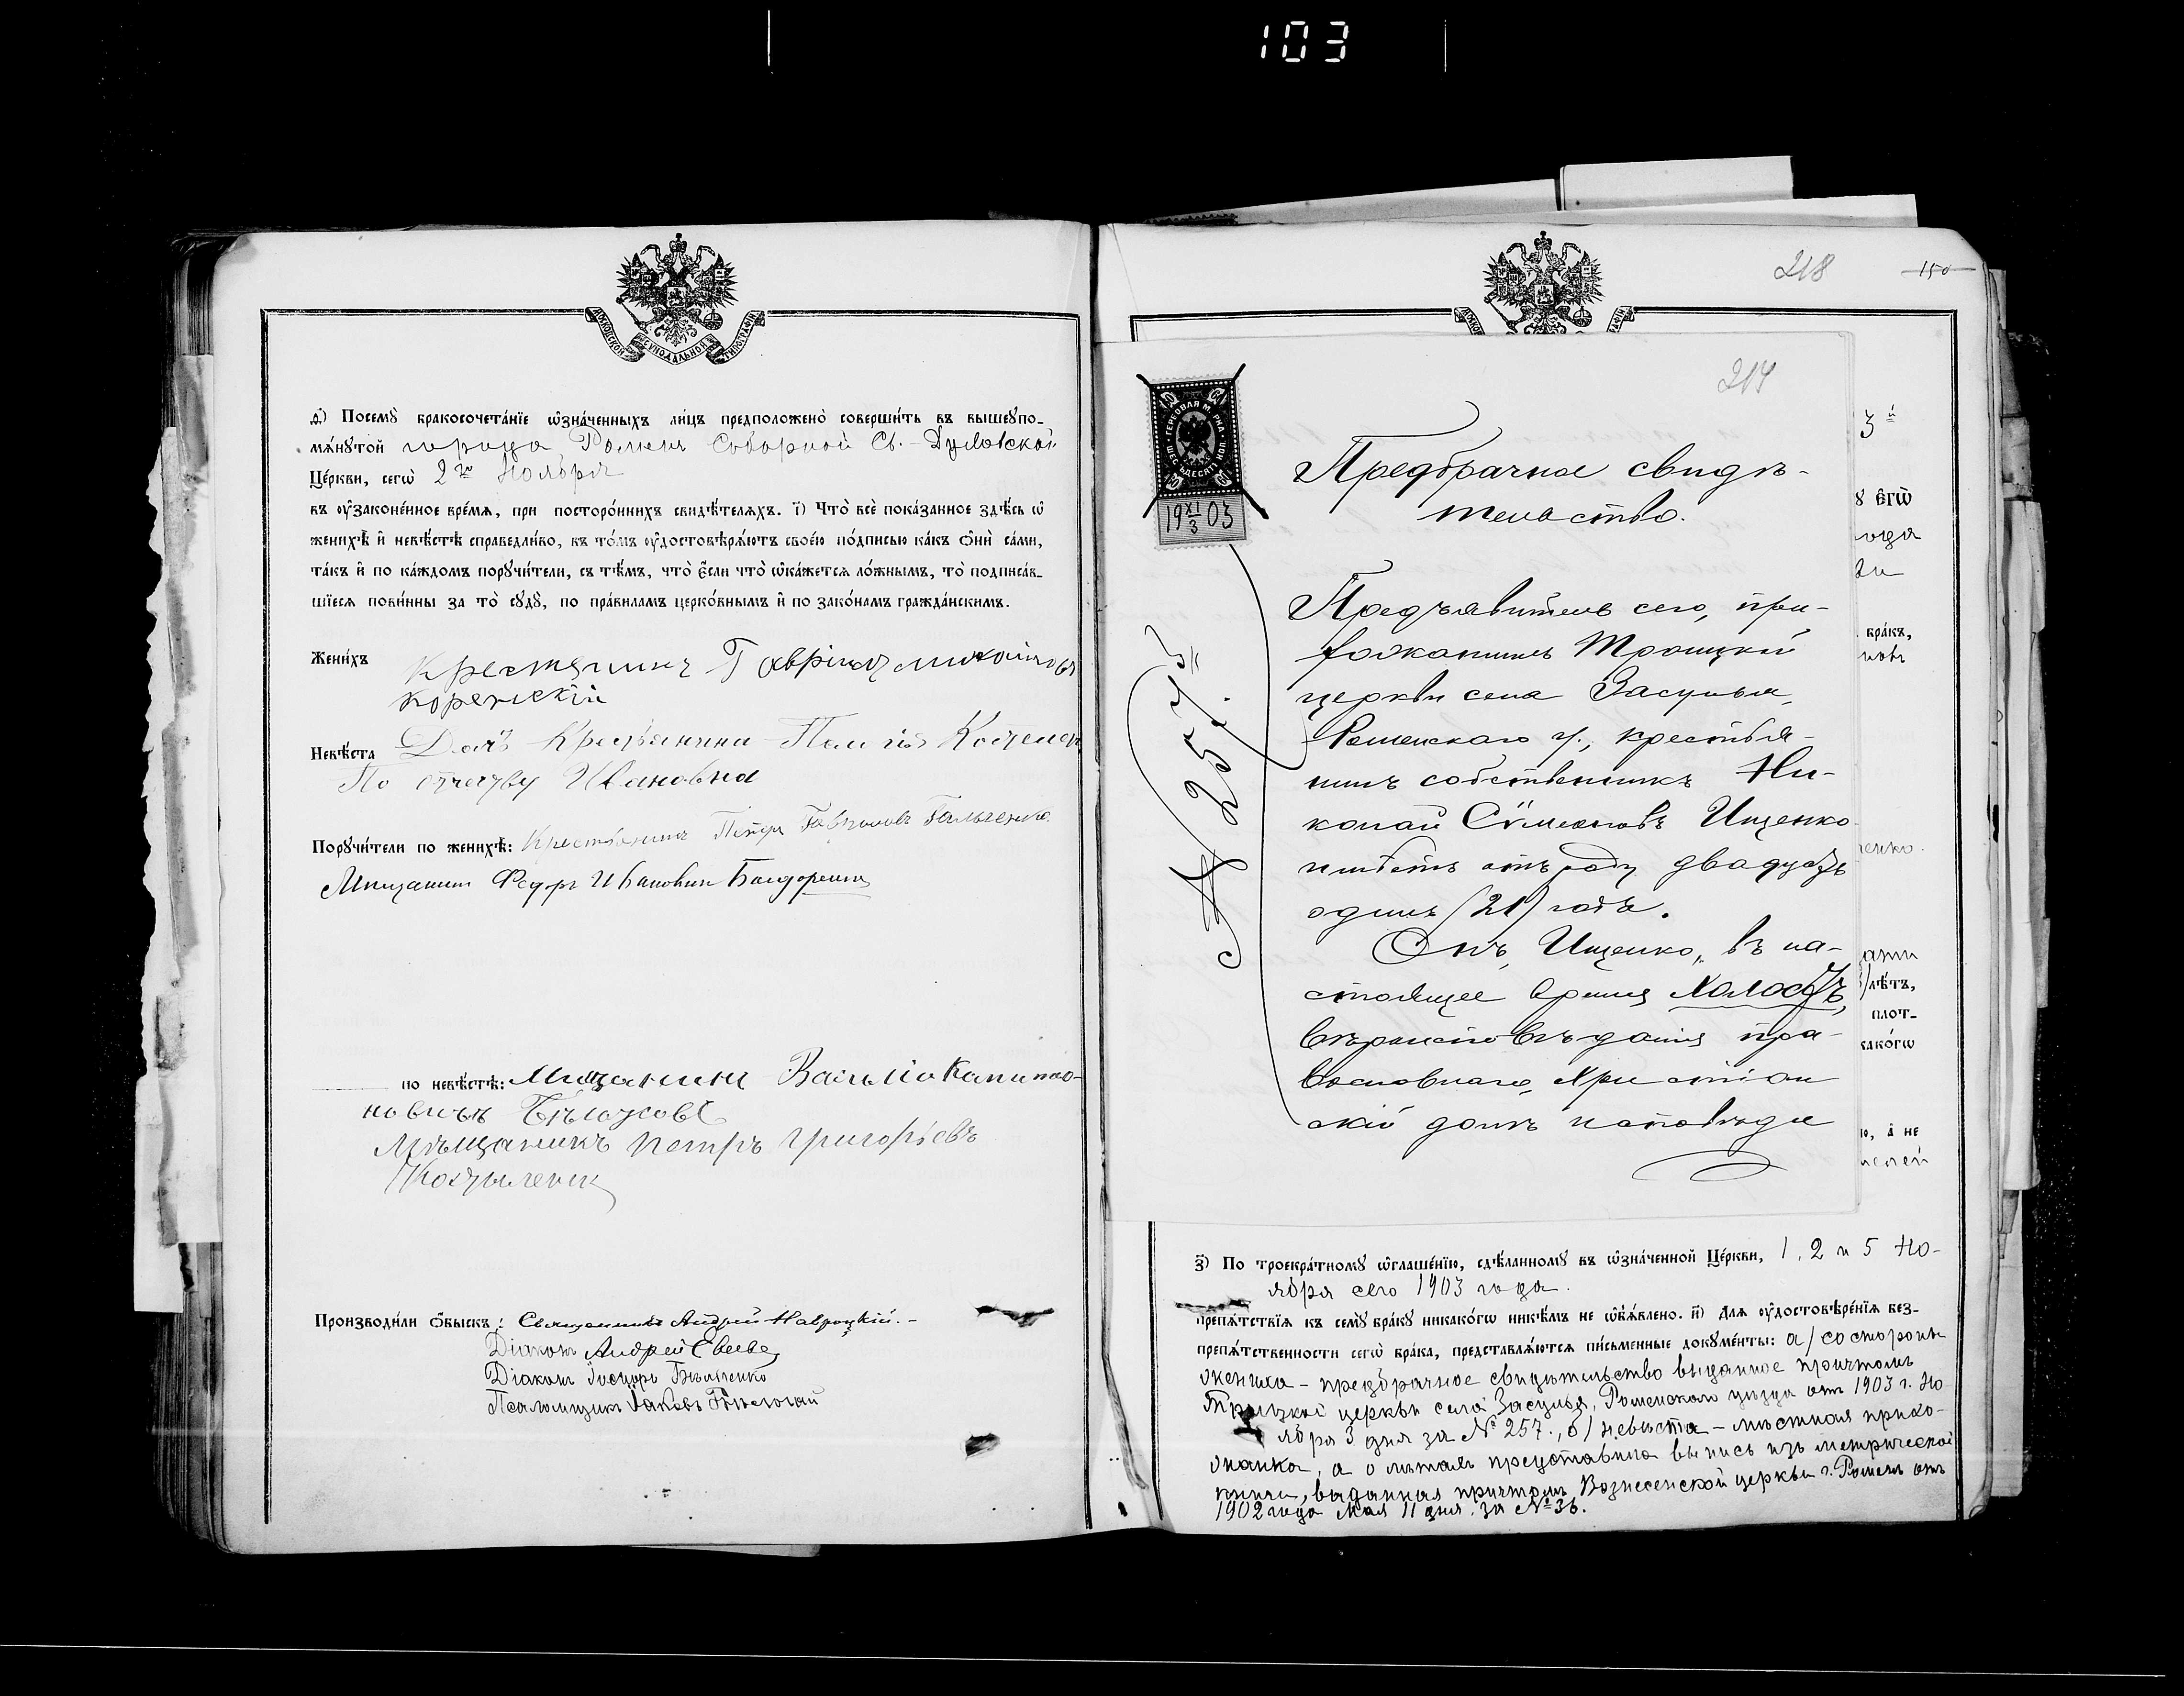 103
МОСКОВСКОЙ СѴНОДАЛЬНОЙ ТИПОГРАФІИ
д҃) Посемꙋ̀ бракосочета́нїе ѡ҆зна́ченныхъ ли́цъ предположено̀ соверши́ть въ вышеꙋпо-
мѧ́нꙋтой города Роменъ Соборной Св.-Духовской
Це́ркви, сегѡ̀ 2го Ноября
въ ᲂу҆законе́нное вре́мѧ, при посторо́ннихъ свидѣ́телѧхъ. і҃) Что̀ всѐ пока́занное здѣ́сь ѡ҆
женихѣ̀ и҆ невѣ́стѣ справедли́во, въ то́мъ ᲂу҆достовѣрѧ́ютъ свое́ю по́дписью ка́къ ѻ҆нѝ са́ми,
та́къ и҆ по ка́ждомъ порꙋчи́тели, съ тѣ́мъ, что̀ є҆́сли что̀ ѡ҆ка́жетсѧ ло́жнымъ, то̀ подписа́в-
шїесѧ пови́нны за то̀ сꙋдꙋ̀, по пра́виламъ церко́внымъ и҆ по зако́намъ гражда́нскимъ.
Жени́хъ Крестянинъ Гавріилъ
Коренскій
Невѣ́ста Дочь Крестьянина
По отчеству Ивановна
Порꙋчи́тели по женихѣ̀: Крестьянинъ Петръ Гавриловъ
Мищанин Федоръ Иванович
по невѣ́стѣ: Мищанинъ Василіо Капито-
новичъ Бѣлоусовъ
Мѣщанинъ Петръ Григорьевъ
Производи́ли ѻ҆́быскъ: Священникъ Андрей Навроцкій.-
Діаконъ Андрей Евсеве
Діаконъ Бѣльченко
Псаломщикъ Іаковъ
218
150
214
ГЕРБОВАЯ МАРКА ШЕСТЬДЕСЯТЪ КОП.
60
19 XI/3 03
№ 257.
Предбрачное свидѣ-
тельство.
Предъявитель сего, при-
хожанинъ Троицкой
церкви села Засулья,
Роменскаго у., крестья-
нинъ собственникъ Ни-
колай Сѵмеоновъ Ищенко
имѣетъ отъ роду двадцать
одинъ (21) годъ.
Онъ, Ищенко, въ на-
стоящее время холостъ,
вѣроисповѣданія пра-
вославнаго, христіан
скій долгъ исповѣди
3й
ꙋ є҆гѡ̀
бра́къ,
лѣ́тъ,
плот-
како́гѡ
ю, а҆ не
з҃) По троекра́тномꙋ ѡ҆глаше́нїю, сдѣ́ланномꙋ въ ѡ҆зна́ченной Це́ркви, 1, 2 и 5 Но-
ября сего 1903 года.
препѧ́тствїѧ къ семꙋ̀ бра́кꙋ никако́гѡ никѣ́мъ не ѡ҆б̾ѧ́влено. и҃) Длѧ ᲂу҆достовѣре́нїѧ без-
препѧ́тственности сегѡ̀ бра́ка, представлѧ́ютсѧ пи́сьменные докꙋме́нты: а) со стороны
жениха - предбрачное свидѣтельство выданное причтомъ
Троицкой церкви села Засулья, Роменскаго уѣзда отъ 1903 г. Но
ября 3 дня за № 257., б) невѣста - мѣстная прихо-
жанка, а о лѣтахъ представила выпись изъ метрической
книги, выданная причтомъ Вознесенской церкви г. Роменъ отъ
1902 года Мая 11 дня, за № 36.